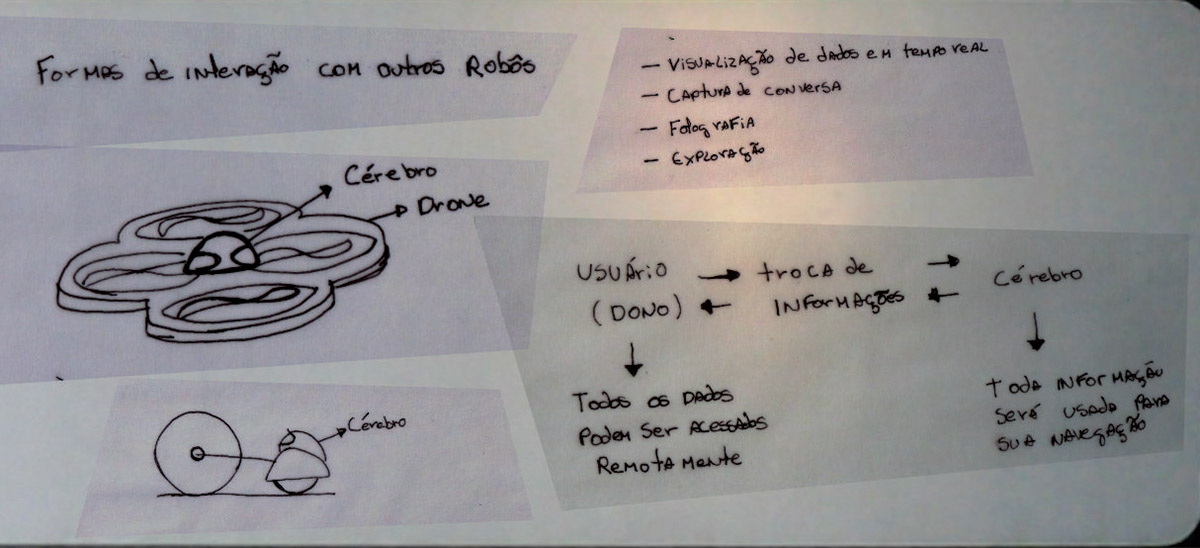 Formas de interação com outros Robôs
- Visualização de dados em tempo real
- Captura de conversa
- Fotografia
- Exploração
Cérebro
Drone
Usuário → troca de → Cérebro
(Dono) ← informações ←
Todos os dados
podem ser acessados
remotamente
toda informação
será usada para
sua navegação
Cérebro